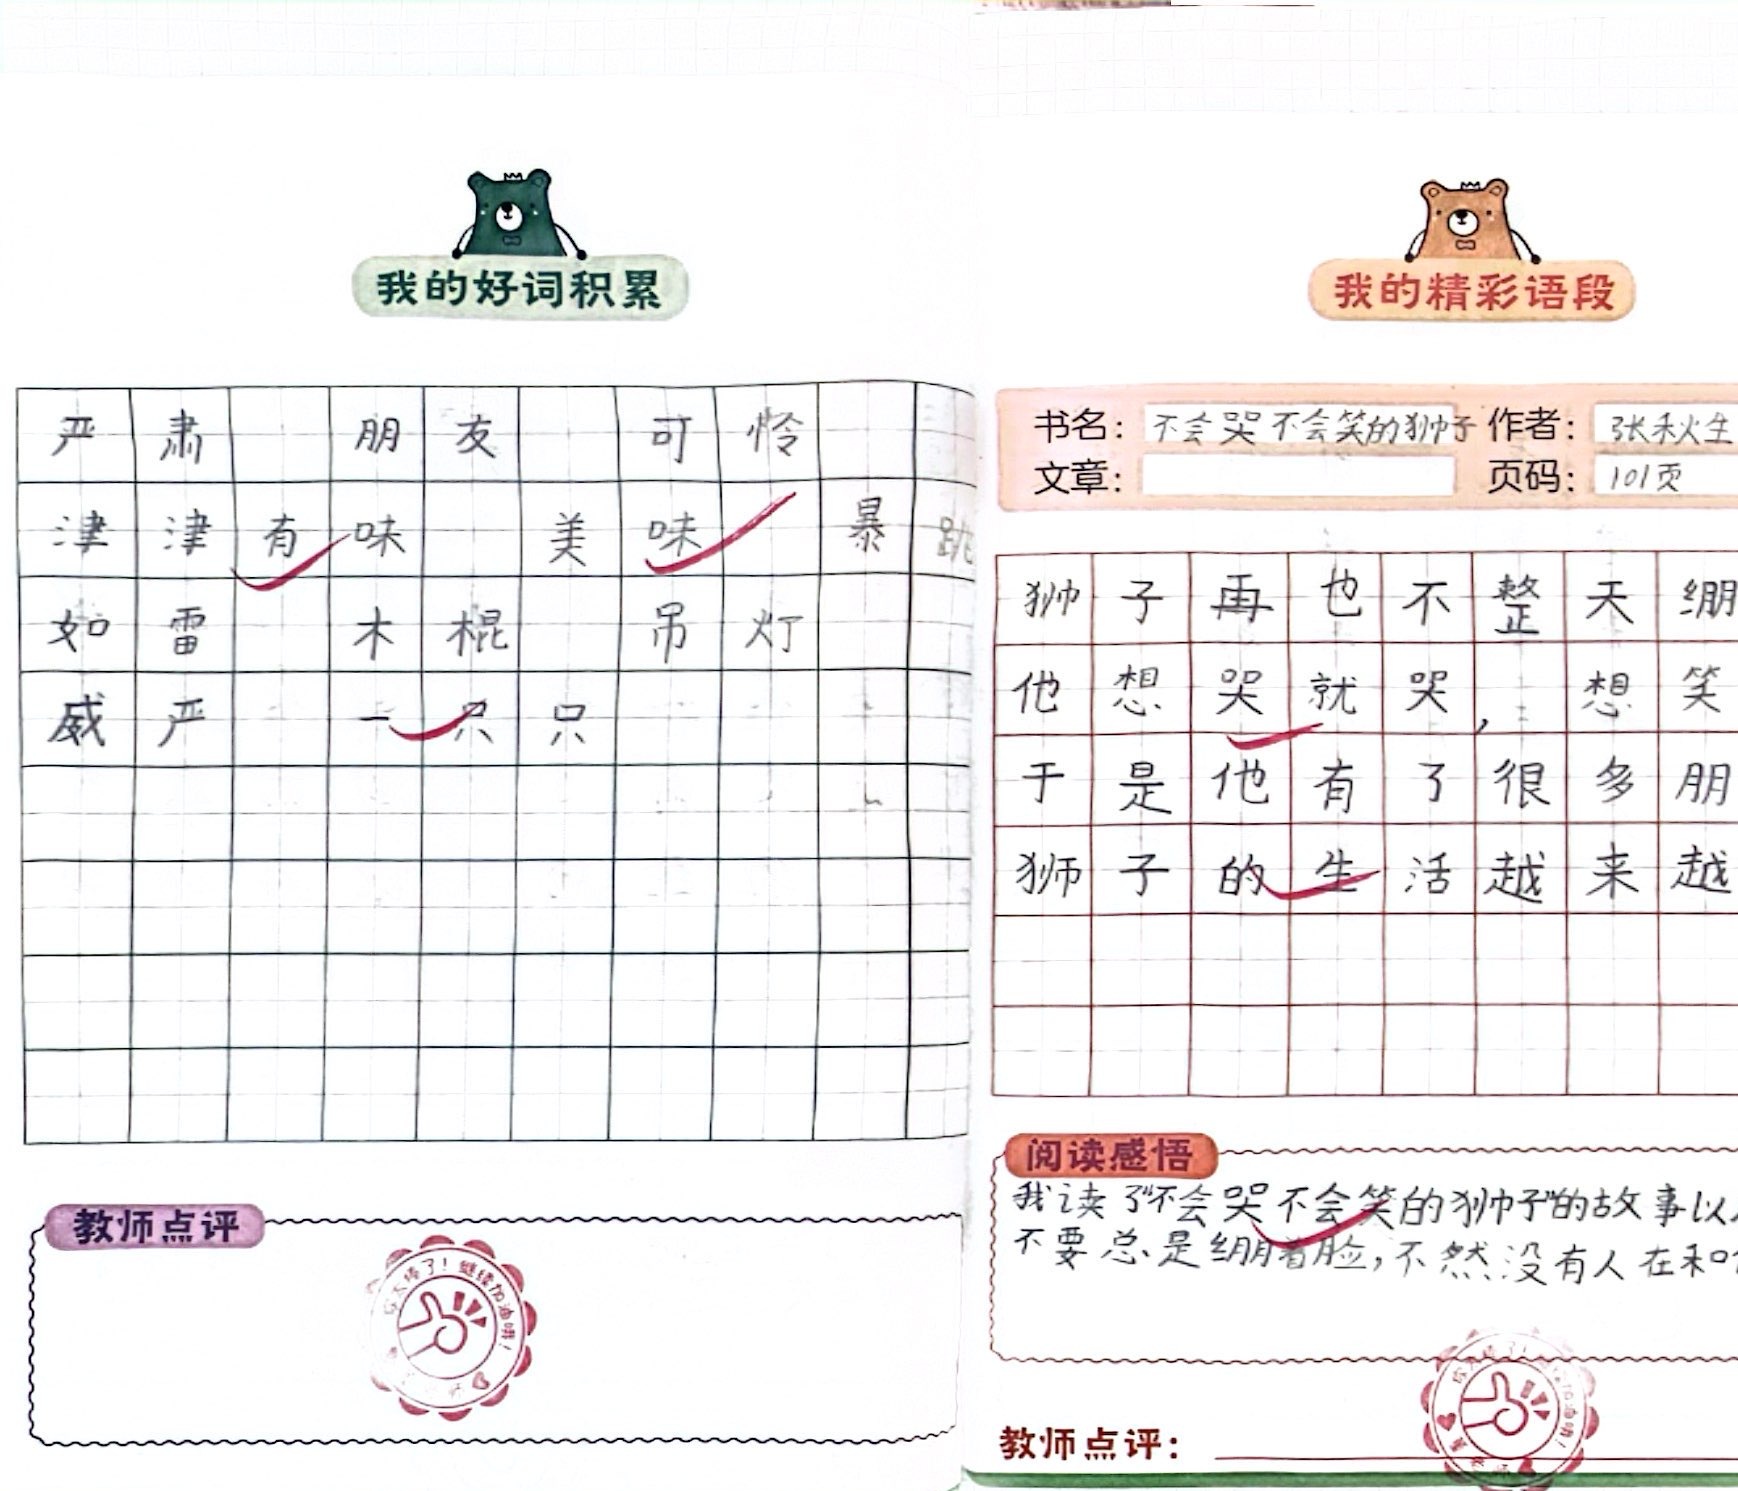 我的好词积累
严肃 朋友 可怜
津津有味 美味 暴跳
如雷 木棍 吊灯
威严 一只只
教师点评
你太棒了！继续加油哦！
我的精彩语段
书名： 不会哭不会笑的狮子 作者： 张秋生
文章： 页码： 101页
狮子再也不整天绷
他想哭就哭， 想笑
于是他有了很多朋
狮子的生活越来越
阅读感悟
我读了“不会哭不会笑的狮子”的故事以
不要总是绷着脸，不然没有人在和
教师点评：